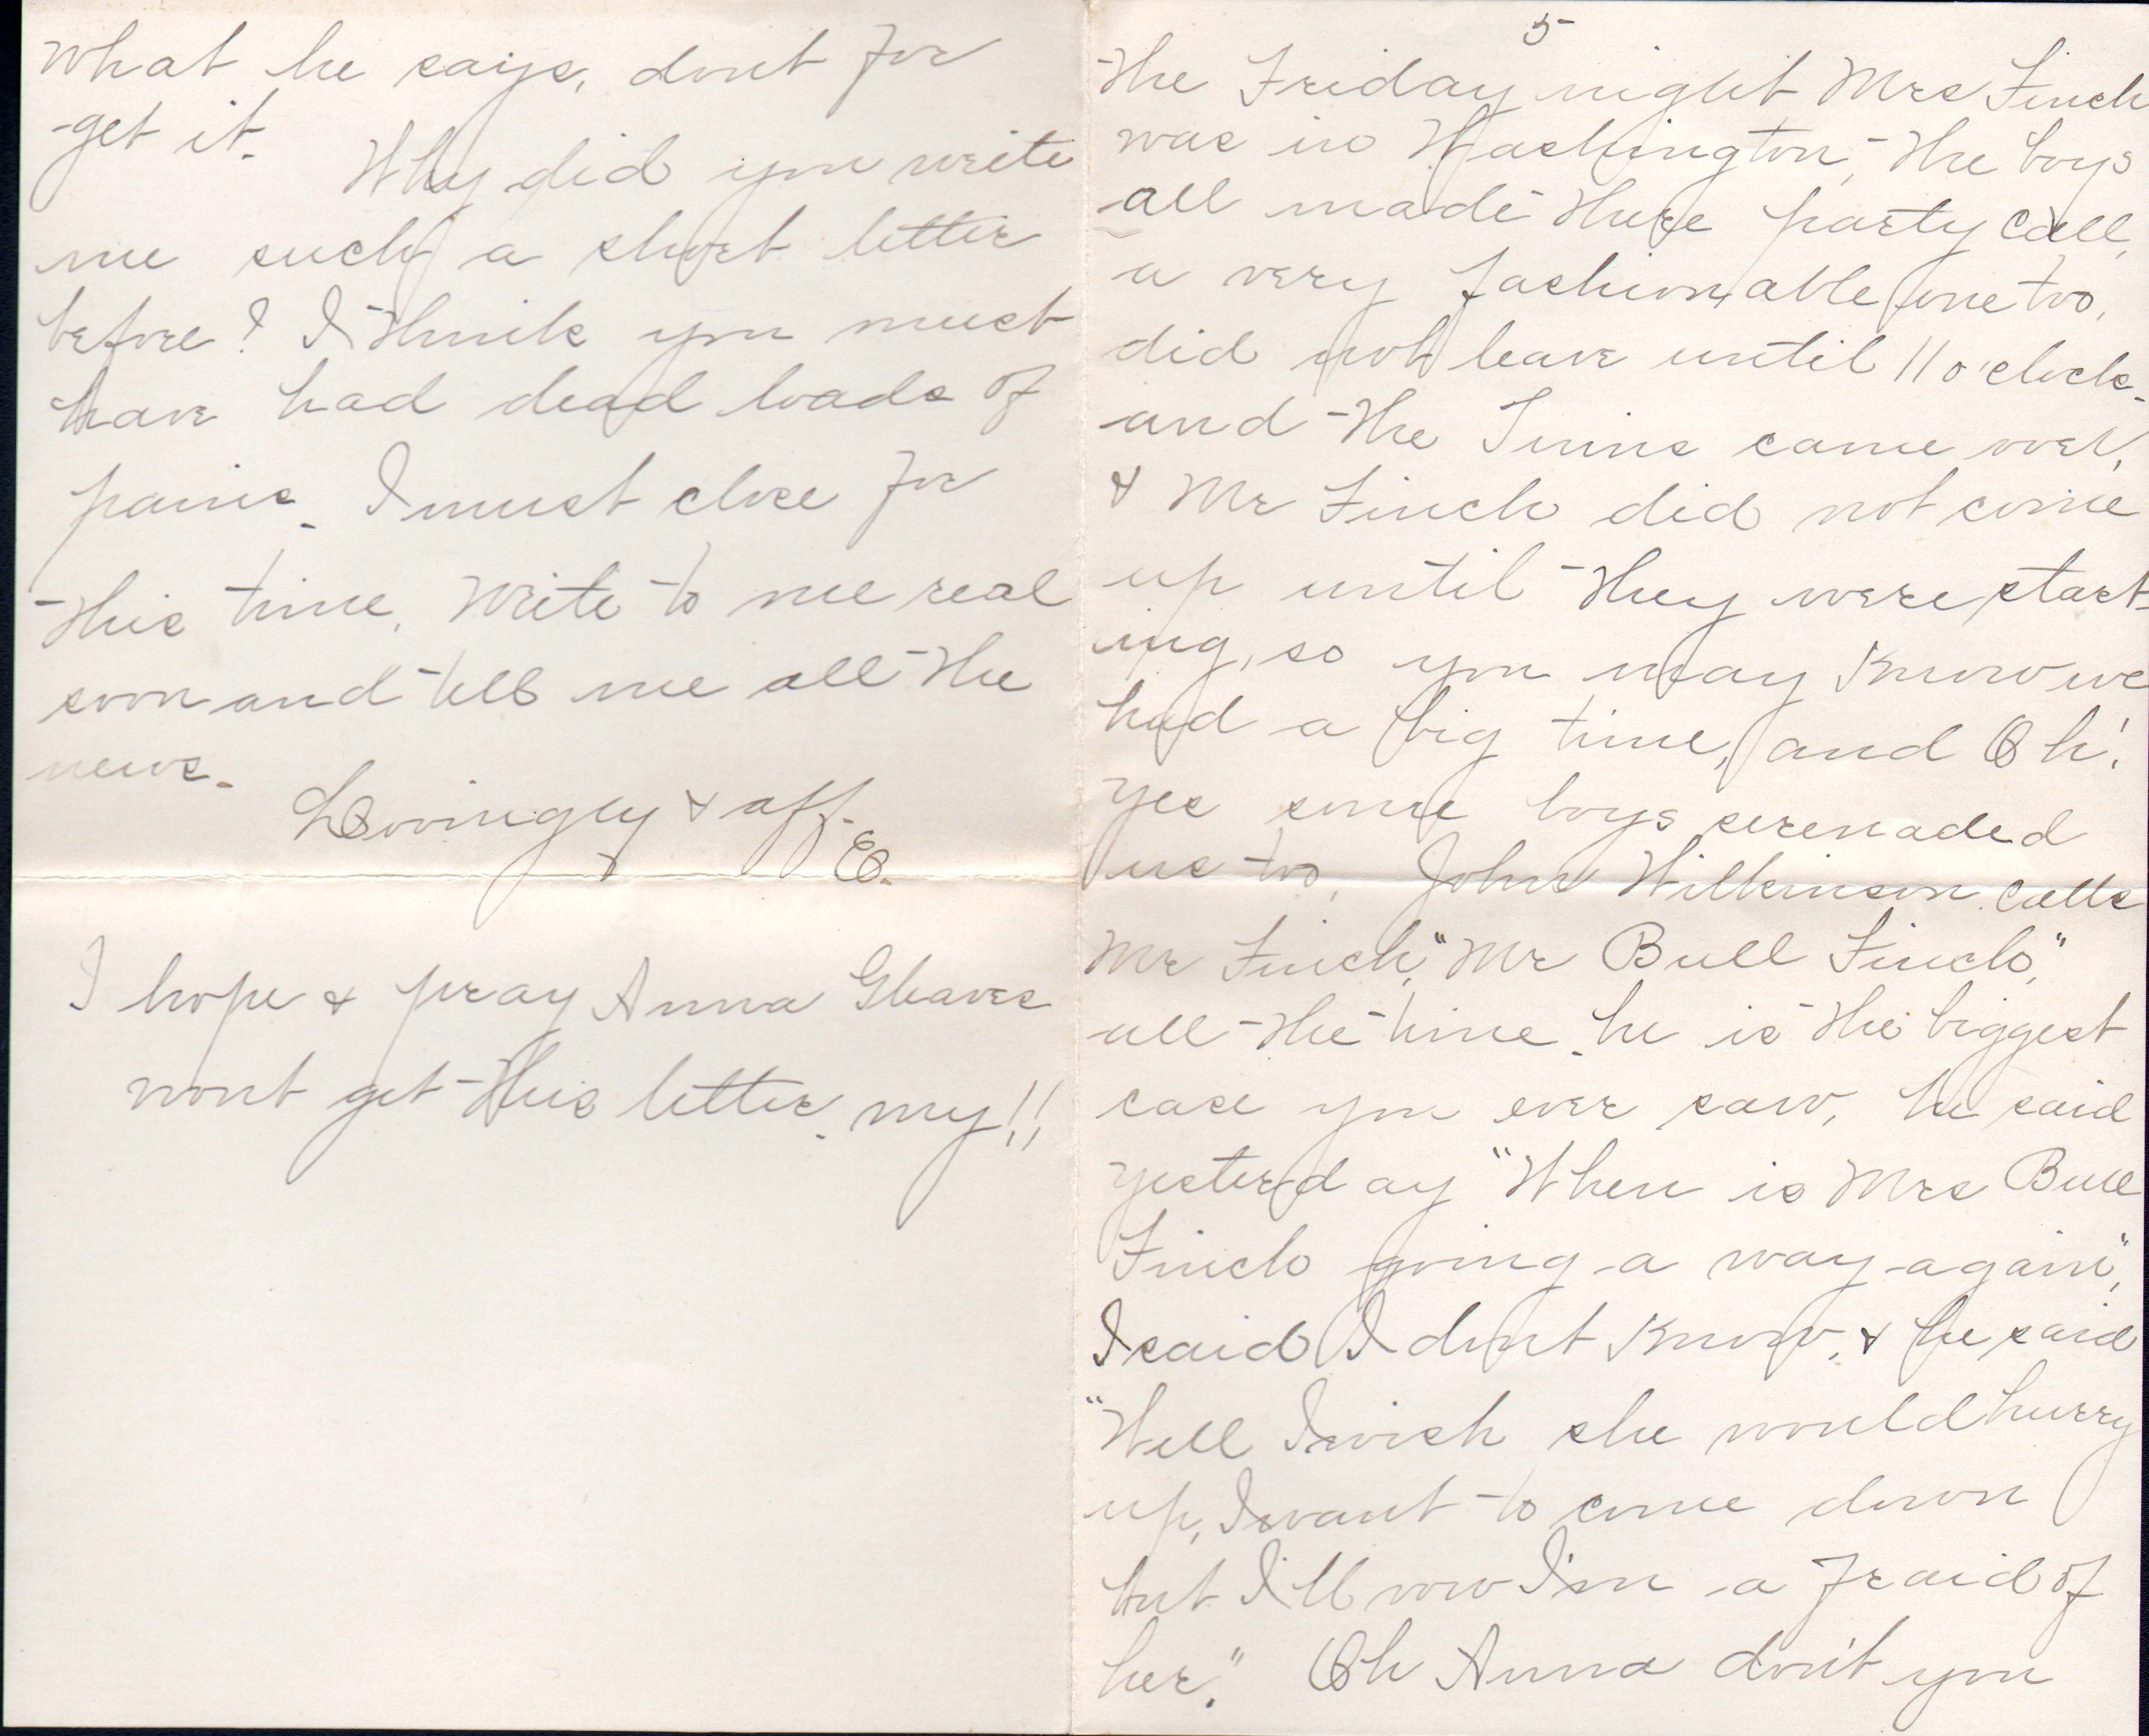 what he says, dont for
get it. Why did you write
me such a short letter
before? I think you must
have had dead loads of
pains. I must close for
this time. Write to me real
soon and tell me all the
news.
Lovingly & aff.
E.
I hope & pray Anna Gleaves
wont get this letter. my!!
5
the Friday night Mrs Finch
was in Washington, the boys
all made there party call,
a very fashionable one too,
did not leave until 11 o'clock.
and the Twins came over,
& Mr Finch did not come
up until they were start
ing, so you may know we
had a big time, and Oh!
yes some boys serenaded
us too, John Wilkinson calls
Mr Finch, "Mr Bull Finch,"
all the time. he is the biggest
case you ever saw, he said
yesterday "When is Mrs Bull
Finch going a way again",
I said I dont know, & he said
"Well I wish she would hurry
up, I want to come down
but I'll vow I'm a fraid of
her." Oh Anna don't you